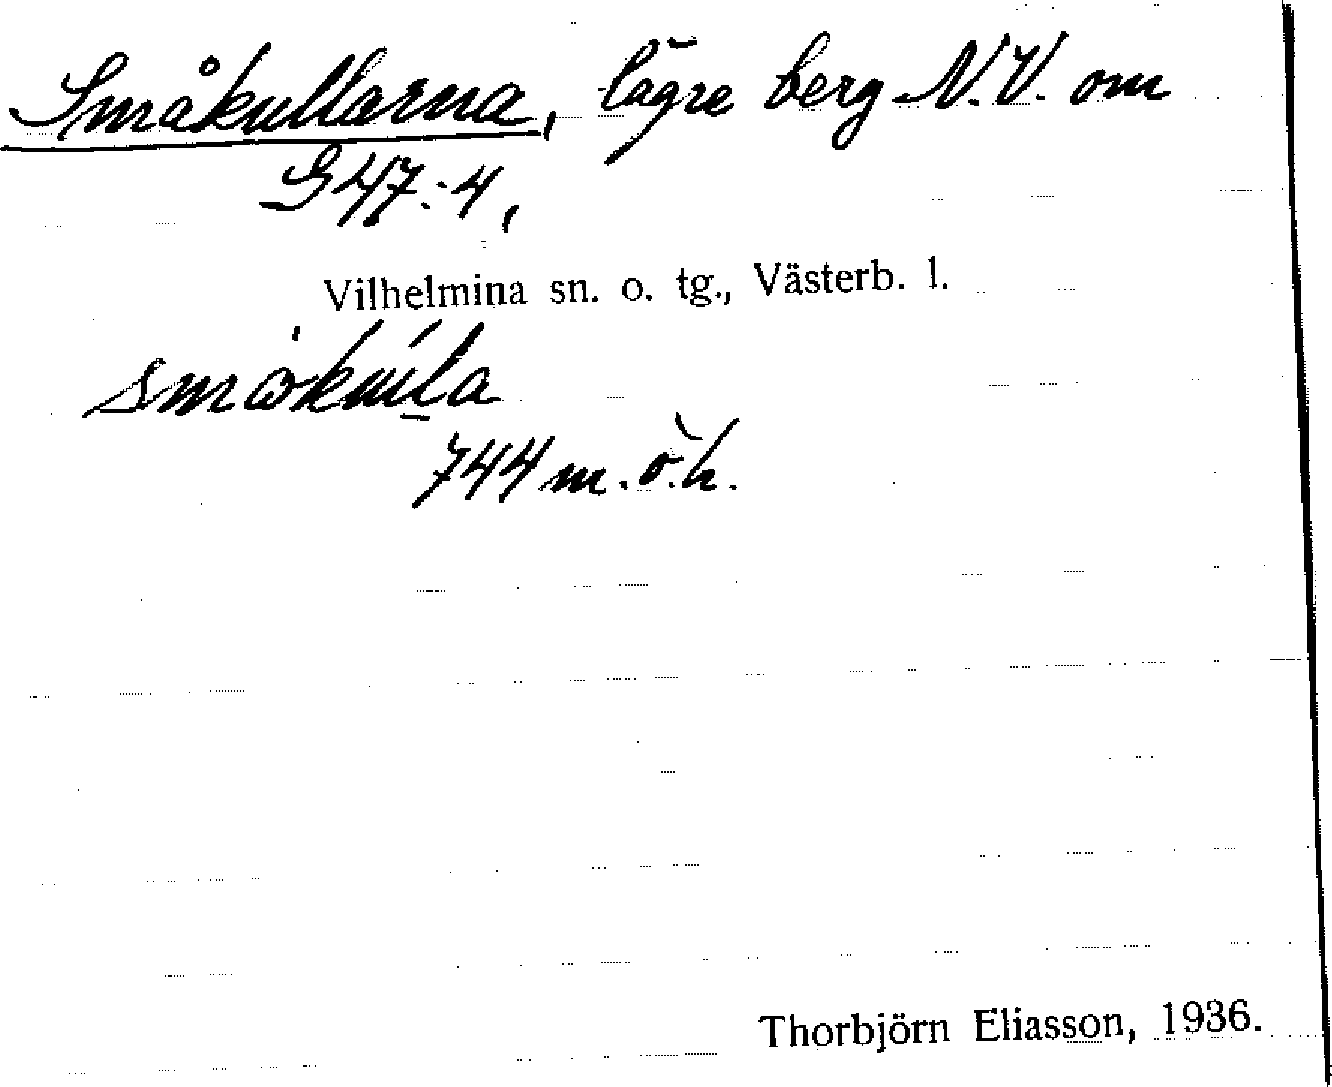 Småkullarna, lägre berg N.V. om
G 47:4,
Vilhelmina sn. o. tg., Västerb. l.
744 m. ö. h.
Thorbjörn Eliasson, 1936.